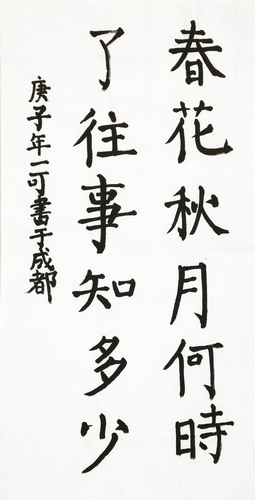 春花秋月何時
了往事知多少
庚子年一可書于成都